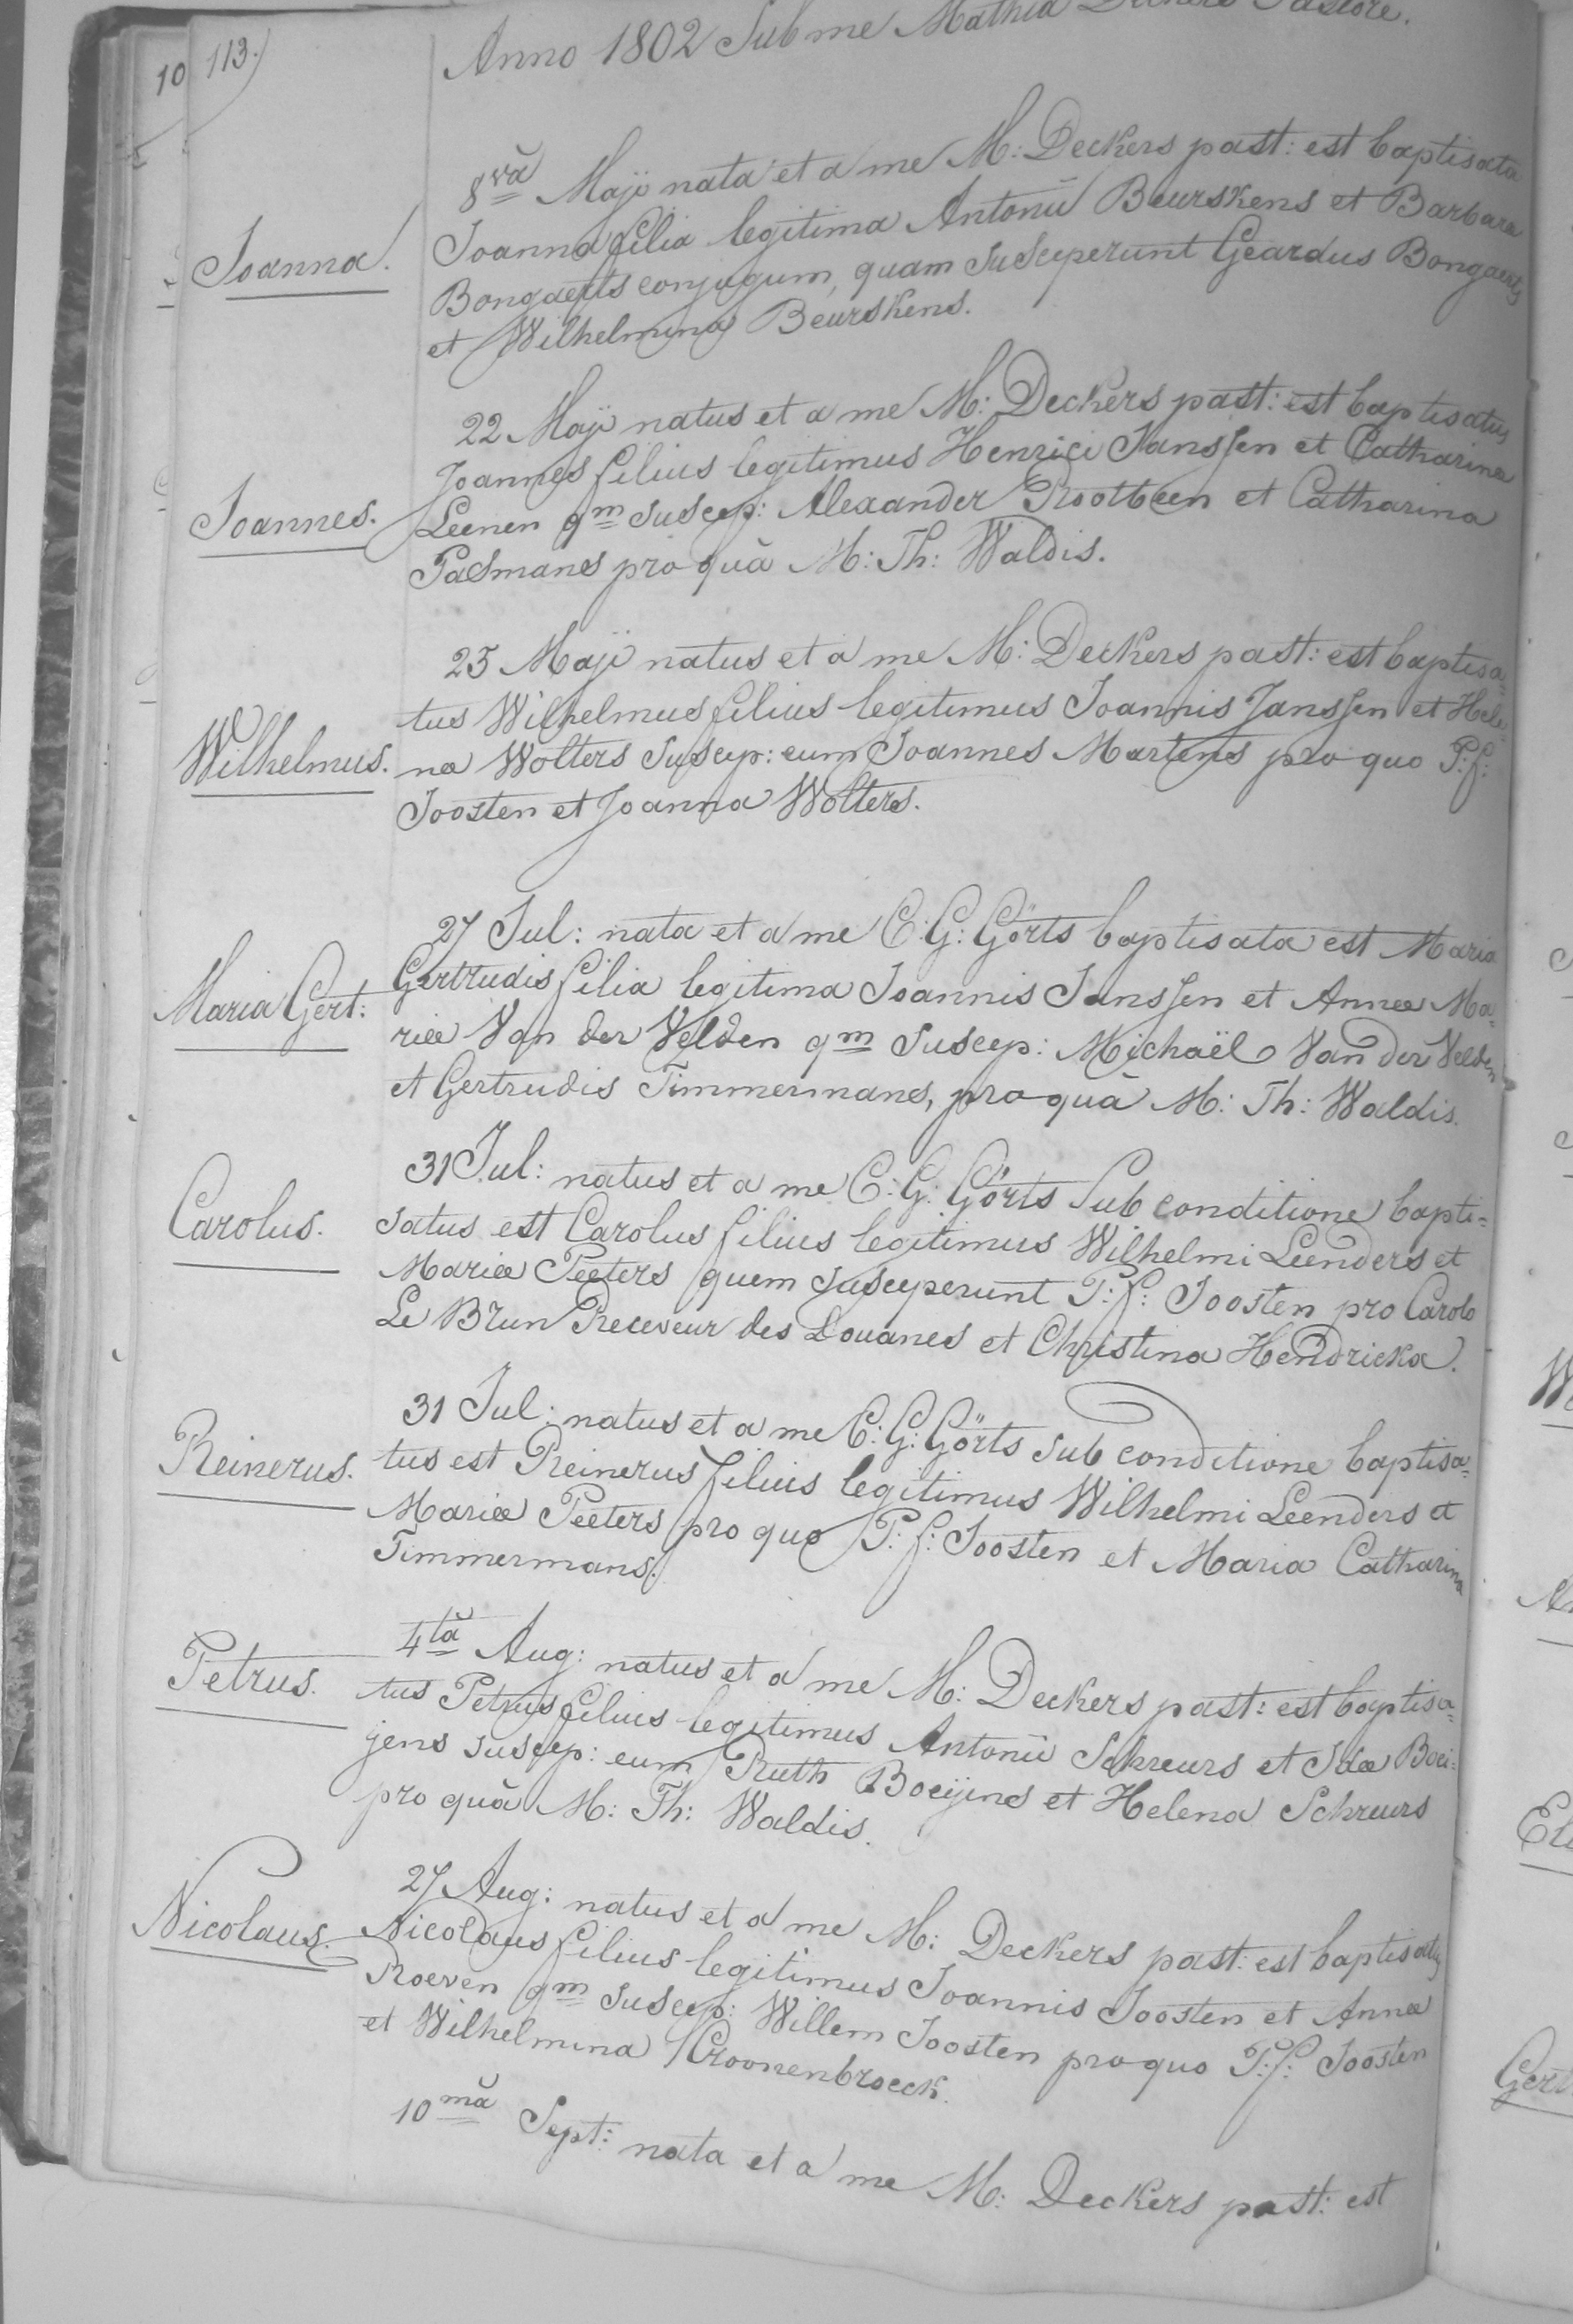 10 113.
Anno 1802 Sub me Mathia Deckers Pastore.
8vâ Maji nata et a me M: Deckers past: est baptisata
Joanna.
Joanna filia legitima Antonii Beurskens et Barbara
Bongaerts conjugum, quam susceperunt Geardus Bongaerts
et Wilhelmina Beurskens.
22 Maji natus et a me M: Deckers past: est baptisatus
Joannes filius legitimus Henrici Janssen et Catharina
Joannes.
Leenen qm suscep: Alexander Rootbeen et Catharina
Pasmans pro quâ M: Th: Waldis.
23 Maji natus et a me M: Deckers past: est baptisa=
tus Wilhelmus filius legitimus Joannis Janssen et Hele=
Wilhelmus.
na Wolters suscep: eum Joannes Martens pro quo P: J:
Joosten et Joanna Wolters.
27 Jul: nata et a me C: G: Görts baptisata est Maria
Maria Gert:
Gertrudis filia legitima Joannis Janssen et Annæ Ma=
riæ Van der Velden qm suscep: Michaël Van der Velden
et Gertrudis Timmermans, pro quâ M: Th: Waldis.
31 Jul: natus et a me C: G: Görts sub conditione bapti=
Carolus.
satus est Carolus filius legitimus Wilhelmi Leenders et
Mariæ Peeters quem susceperunt P: J: Joosten pro Carolo
Le Brun Receveur des Douanes et Christina Hendricka.
31 Jul: natus et a me C: G: Görts sub conditione baptisa=
Reinerus.
tus est Reinerus filius legitimus Wilhelmi Leenders et
Mariæ Peeters pro quo P: J: Joosten et Maria Catharina
Timmermans.
4tâ Aug: natus et a me M: Deckers past: est baptisa=
Petrus.
tus Petrus filius legitimus Antonii Schreurs et Idæ Boei=
jens suscep: eum Ruth Boeijens et Helena Schreurs
pro quâ M: Th: Waldis.
27 Aug: natus et a me M: Deckers past: est baptisatus
Nicolaus.
Nicolaus filius legitimus Joannis Joosten et Annæ
Roeven qm suscep: Willem Joosten pro quo P: J: Joosten
et Wilhelmina Croonenbroeck.
10mâ Sept: nata et a me M: Deckers past: est